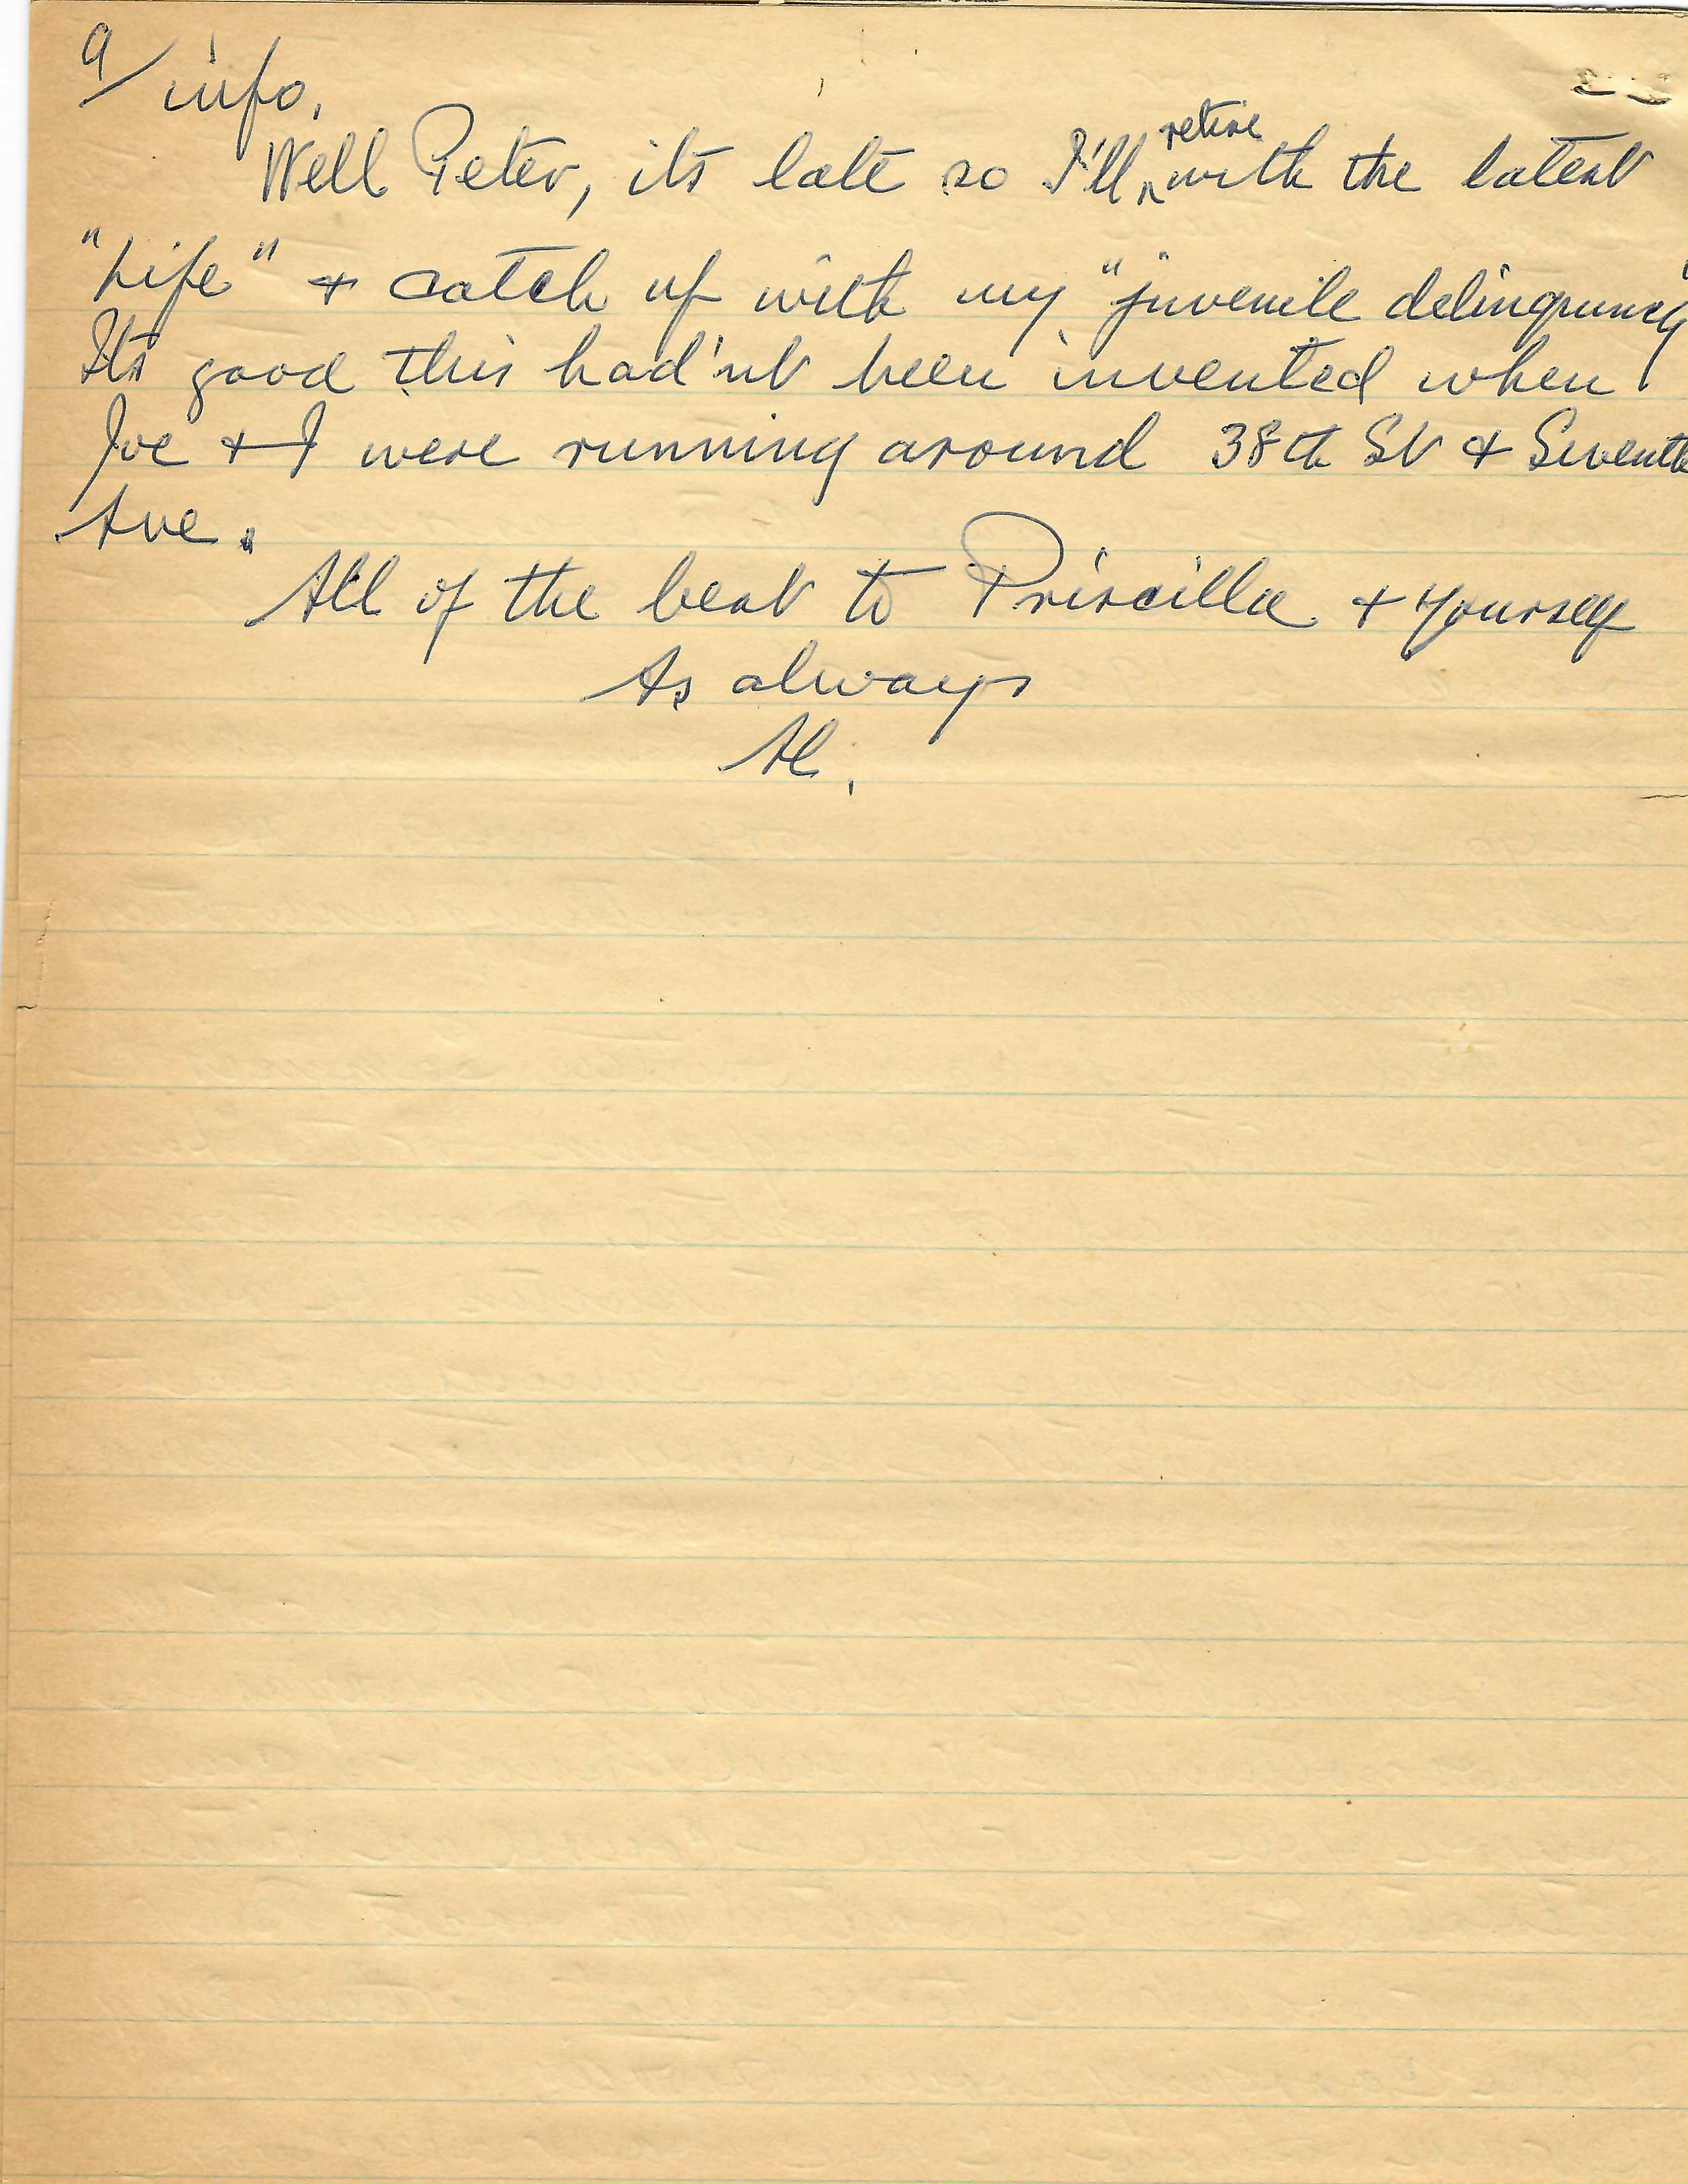 9/ info.
Well Peter, its late so I'll retire with the latest
"Life" + catch up with my "juvenile delinquency"
Its good this had'nt been invented when
Joe + I were running around 38th St + Seventh
Ave.
All of the best to Priscilla + yourself
As always
Al.